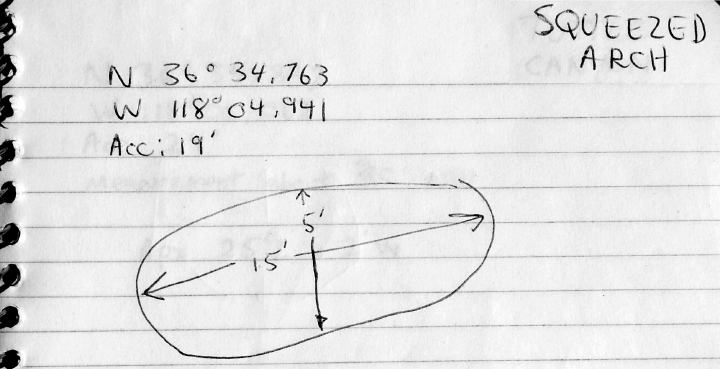 SQUEEZED
ARCH
N 36° 34.763
W 118° 04.941
Acc: 19'
5'
15'